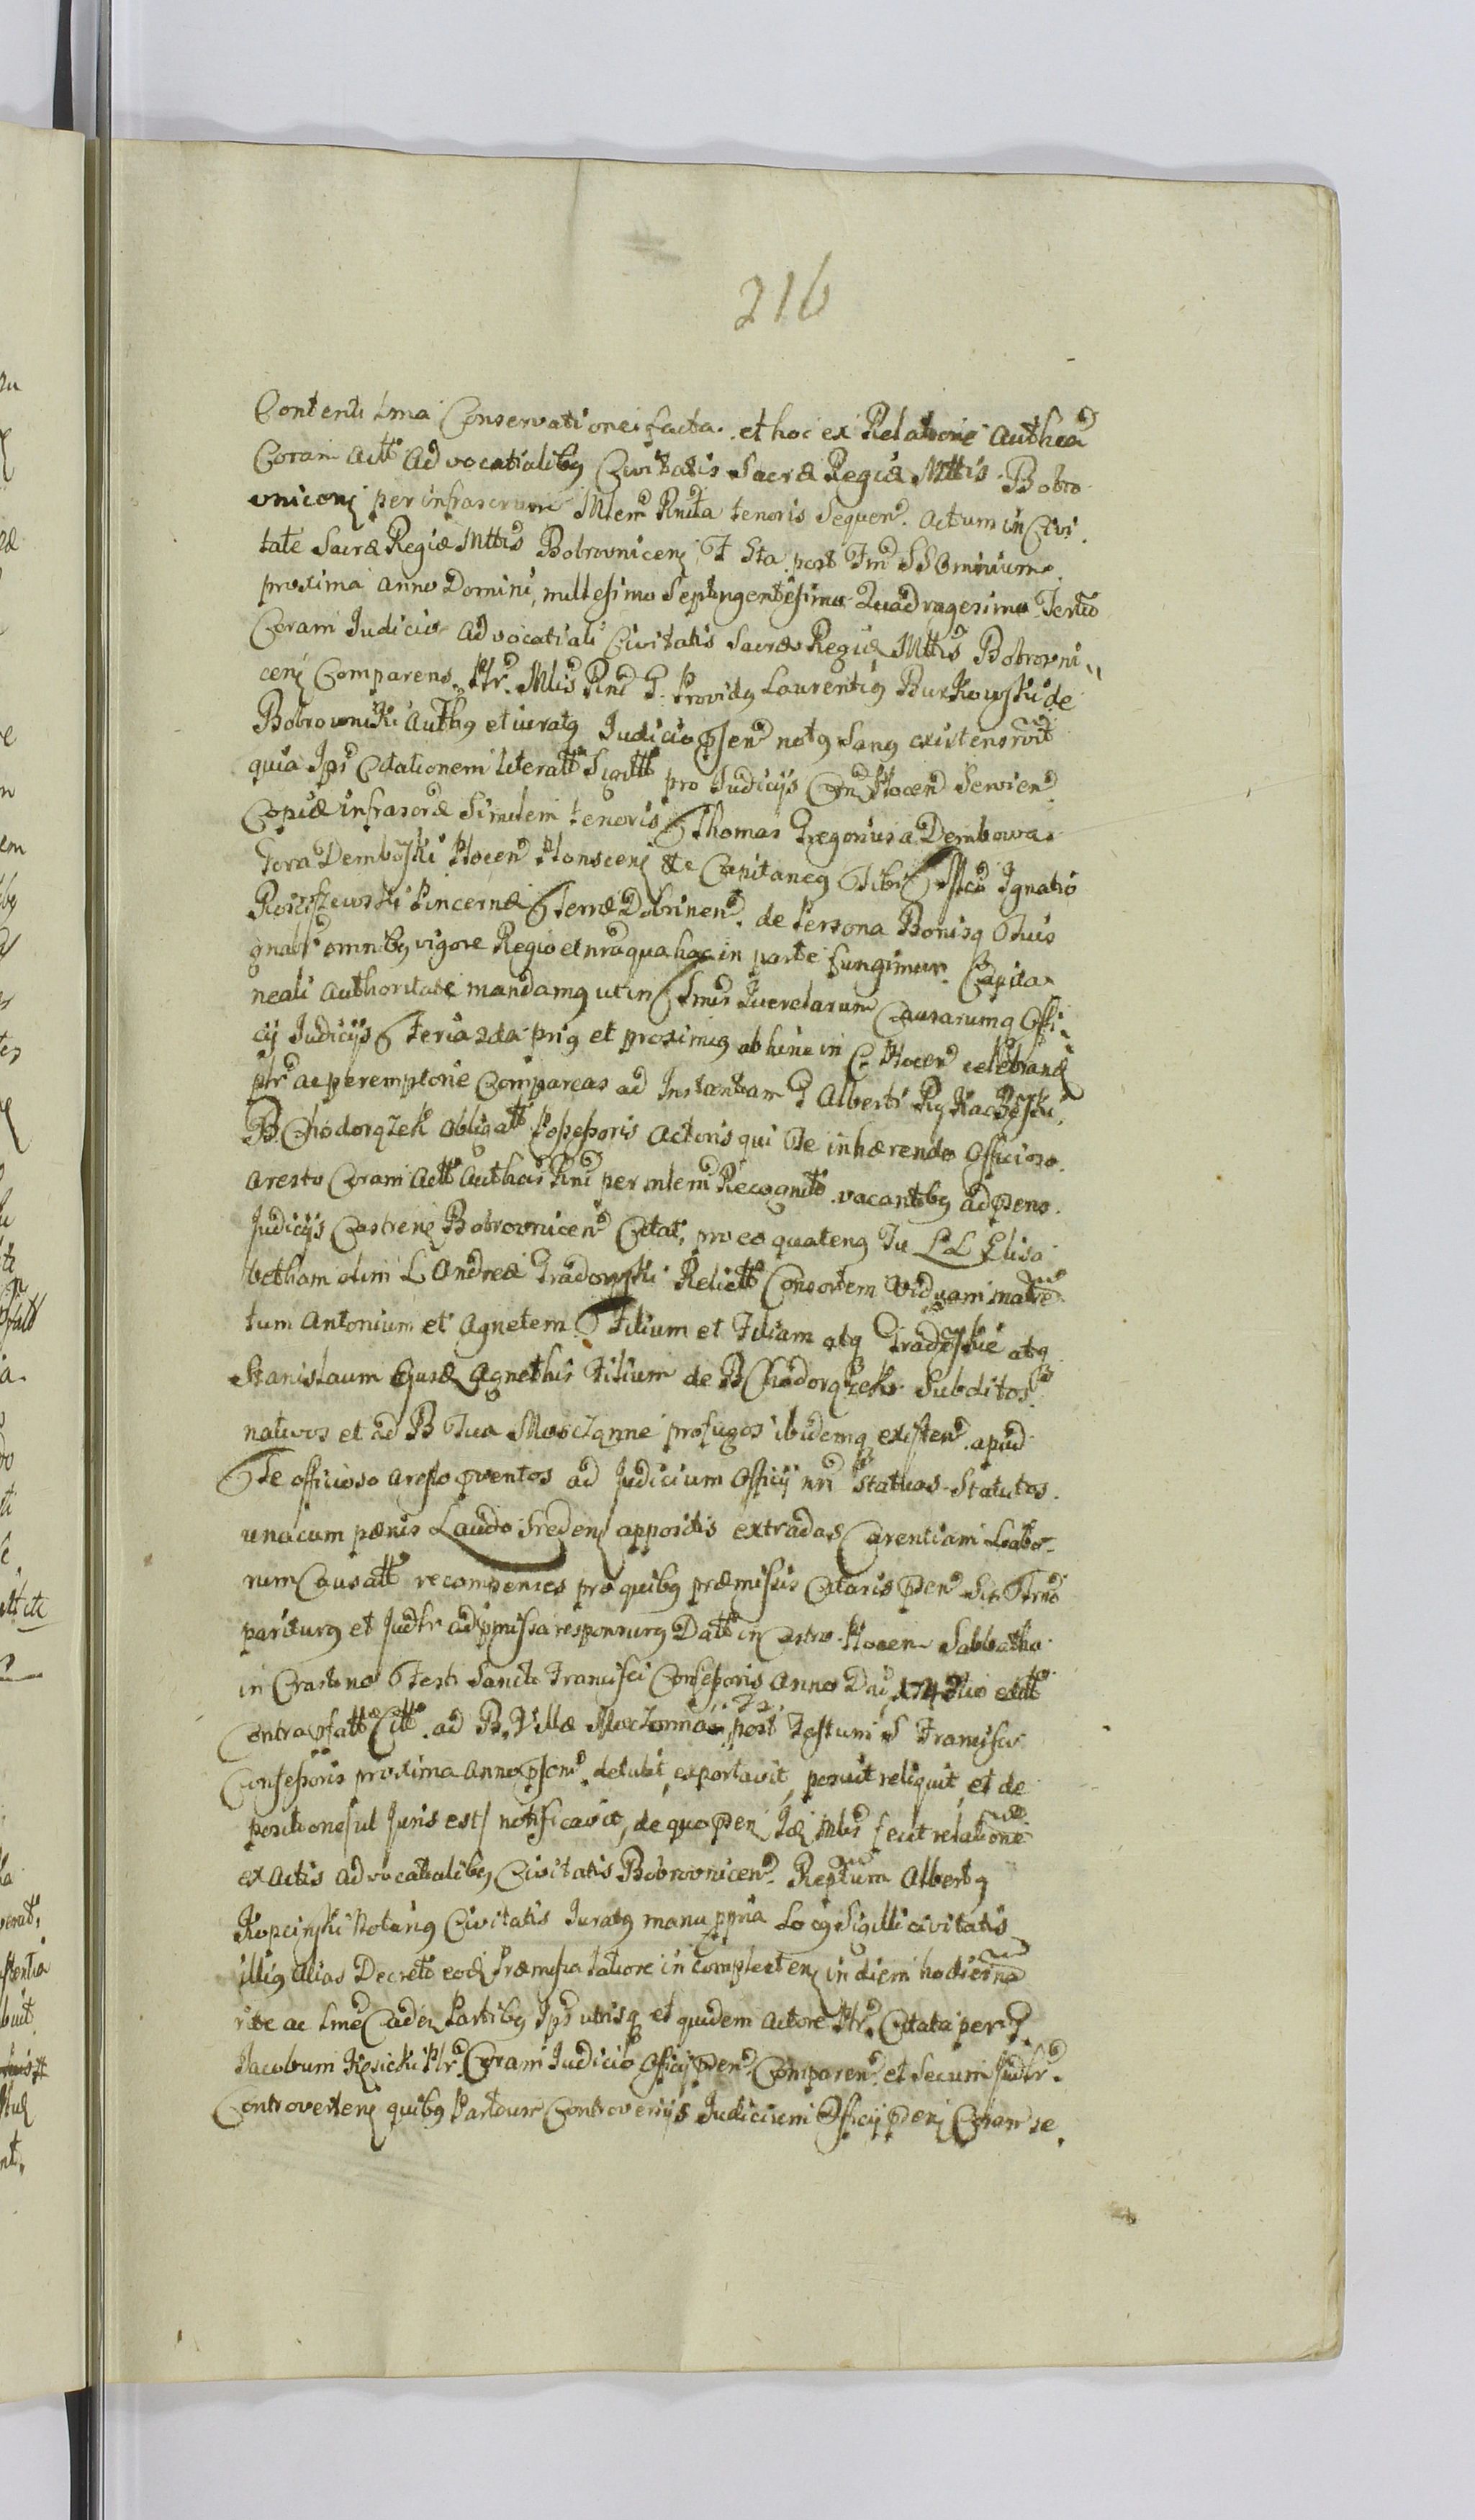 216
Contenti Lma Conservatione facta. et hoc ex Relatione Authca
Coram Actt Advocatialibq Civitatis Sacræ Regiæ Mttis Bobro
vnicen per infrascrum Mlem Rnita tenoris Sequen. Actum in Civi
tate Sacræ Regiæ Mttis Bobrovnicen F 5ta post Fm SS Omnium
proxima Anno Domini millesimo Septingentesimo Quadragesimo Tertio
Coram Judicio Advocatiali Civitatis Sacræ Regiæ Mttis Bobrovni
cen Comparens Plr Mlis Rnd G. Providq Laurentiq Burkowski de
Bobrowniki Authq et iuratq Judicio psen notq Sanq existens rvit
quia Ips Citationem literatt Sigitt pro Judicijs Cn Plocen Servien
Copiæ infrascræ Similem tenoris Thomas Gregorius a Dembowa
Gora Dembowski Plocen Plonscen &c Capitaneq Tibi Mfco Ignatio
Rosciszewski Pincernæ Terræ Dobrinen. de Persona Bonisq Tuis
gnalr omnibq vigore Regio et nra qua hac in parte fungimur Capita
neali Authoritate mandamq ut in Tmis Querelarum Causarumq Offi
cij Judicijs Feria 2da priq et proximiq ab hinc in C. Plocen celebrand
plr ac peremptorie Compareas ad Instantiam G Alberti
B. Chodorążek Obligatt Possessoris Actoris qui Te inhærendo Officioso
aresto Coram Actt Authcis Rnd per mlem Recognitt vacantibq ad psens
Judicijs Castren Bobrovnicen Citat, pro eo quatenq Tu LL Elisa
betham olim L Andreæ Gradowski Relictt Consortem Viduam
tum Antonium et Agnetem Filium et Filiam atq Gradoskie atq
Stanislaum Ejusd Agnethis Filium de B Chodorążek Subditos
nativos et ad B Tua Moscząnne profugos ibidemq existen apud
Te officioso aresto pventos ad Judicium Officij nri statuas Statutos
unacum pænis Laudo Sreden appositis extradas Carentiam Labo
rum Causatt recompenses pro quibq præmissis Citaris psen Sis Trno
pariturq et Judlr ad pmissa responsurq Datt in Castro Plocen Sabbatho
in Crastino Festi Sancti Francisci Confessoris Anno Dni 174
Contra pfatt Citt ad B. Villæ post Festum S Francisci
Confessoris proxima Anno psen detulit, exportavit, posuit reliquit, et de
positione ut Juris est notificavit, de quo psen Id Mlis fecit relatione
ex Actis Advocatialibq Civitatis Bobrovnicen Reptum Albertq
Kopcinski Notariq Civitatis Juratq manu ppria Locq Sigilli civitatis
illiq alias Decreto eod Præmissa latiore in complecten in diem hodierna
rite ac Lme Caden Partibq Ips utrisq et quidem Actore Plr Citata per G.
Jacobum Kęsicki Plr Coram Judicio Officij psen Comparen et Secum Judlr
Controverten quibq Partium Controversijs Judicium Officij psen Coram se